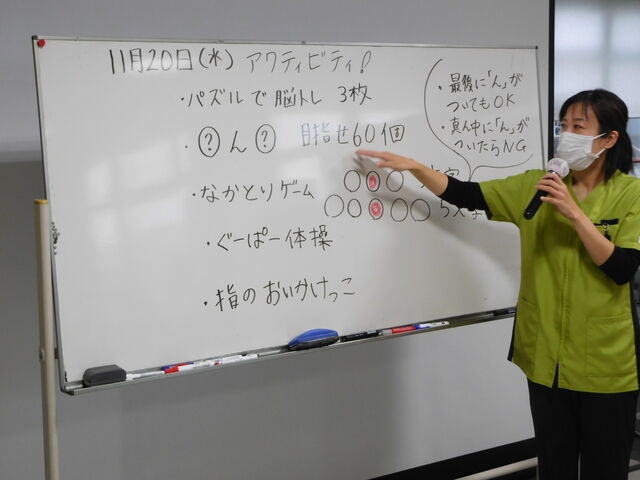 11月20日(水) アクティビティ!
・パズルで脳トレ 3枚
・? ん ? 目指せ60個
・なかとりゲーム
・ぐーぱー体操
・指のおいかけっこ
・最後に「ん」が
ついてもOK
・真ん中に「ん」が
ついたらNG